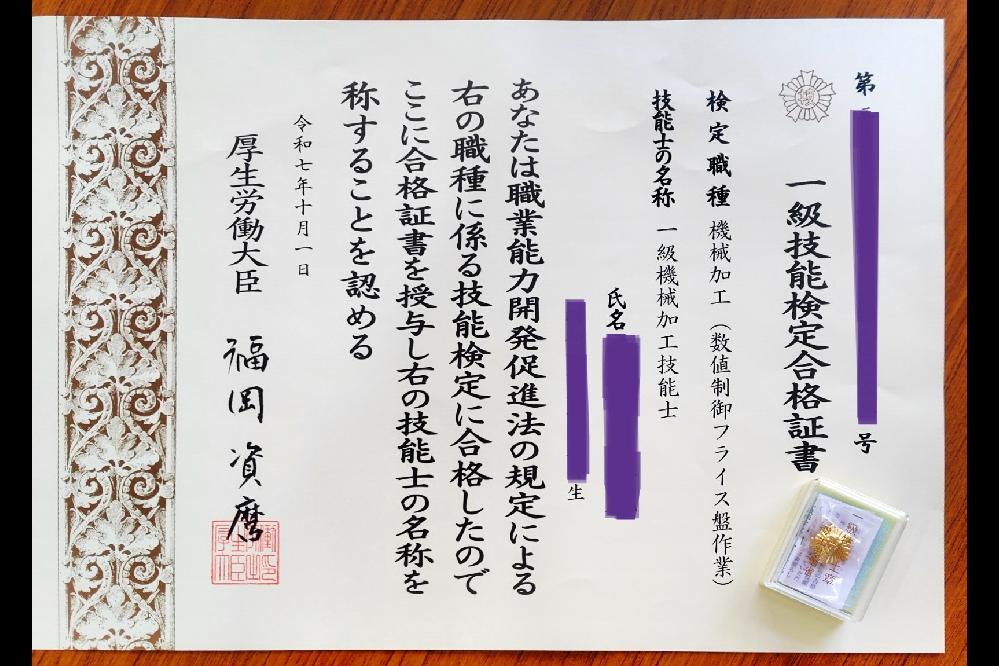 第
号
一級技能検定合格証書
検定職種 機械加工(数値制御フライス盤作業)
技能士の名称 一級機械加工技能士
氏名
生
あなたは職業能力開発促進法の規定による
右の職種に係る技能検定に合格したので
ここに合格証書を授与し右の技能士の名称を
称することを認める
令和七年十月一日
厚生労働大臣 福岡資麿